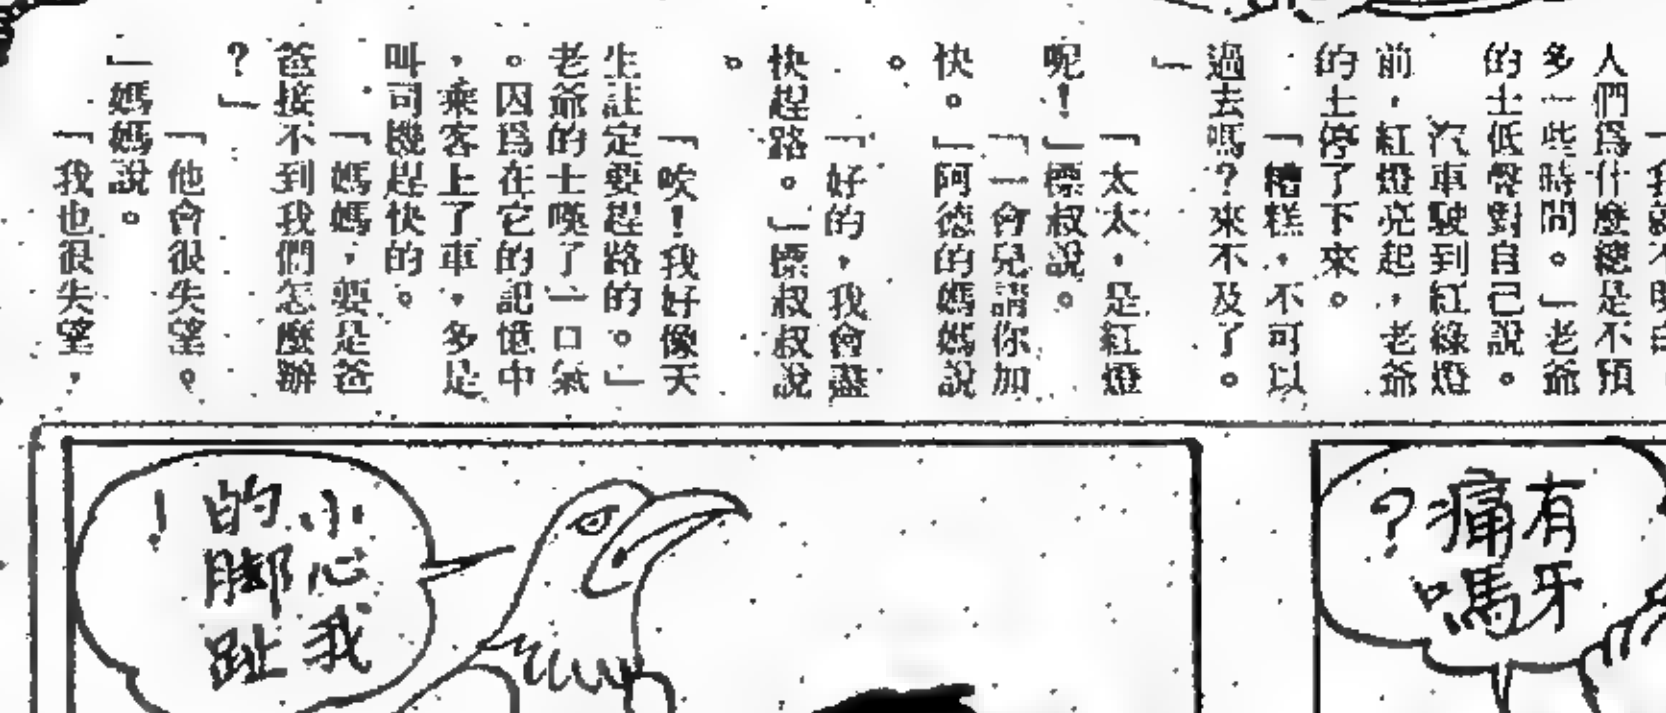 「我就不明白，
人們爲什麼總是不預
多一些時間。」老爺
的士低聲對自己說。
汽車駛到紅綠燈
前，紅燈亮起，老爺
的士停了下來。
「糟糕，不可以
過去嗎？來不及了。
」
「太太，是紅燈
呢！」標叔說。
「一會兒請你加
快。」阿德的媽媽說
。
「好的，我會盡
快趕路。」標叔叔說
。
「唉！我好像天
生註定要趕路的。」
老爺的士嘆了一口氣
。因爲在它的記憶中
，乘客上了車，多是
叫司機趕快的。
「媽媽，要是爸
爸接不到我們怎麼辦
？」
「他會很失望。
」媽媽說。
「我也很失望，
有牙
痛嗎
？
小心我
的腳趾
！